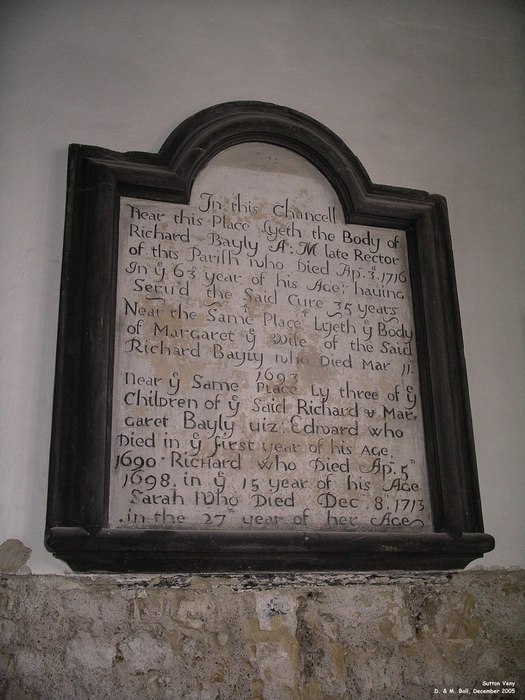 In this Chancell
Near this Place Lyeth the Body of
Richard Bayly A: M late Rector
of this Parish who Died Ap: 3.d 1716
In ye 63 year of his Age; having
Serv'd the Said Cure 35 years
Near the Same Place Lyeth ye Body
of Margaret ye Wife of the Said
Richard Bayly who Died Mar 11.
1693
Near ye Same Place Ly three of ye
Children of ye Said Richard & Mar,
garet Bayly viz: Edward who
Died in ye first year of his Age
1690 Richard who Died Ap. 5th
1698. in ye 15 year of his Age
Sarah who Died Dec 8. 1713
.in the 27th year of her Age
Sutton Veny
D. & M. Ball, December 2005